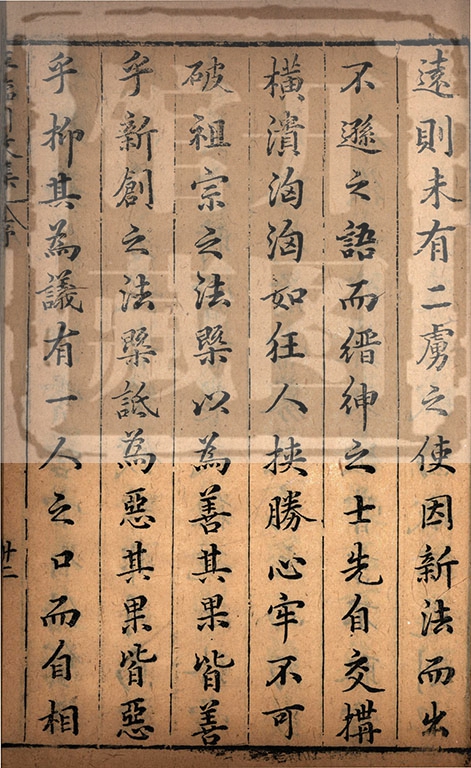 遠則未有二虜之使因新法而出
不遜之語而縉紳之士先自交搆
橫潰洶洶如狂人挾勝心牢不可
破祖宗之法槩以為善其果皆善
乎新創之法槩詆為惡其果皆惡
乎抑其為議有一人之口而自相
廿二